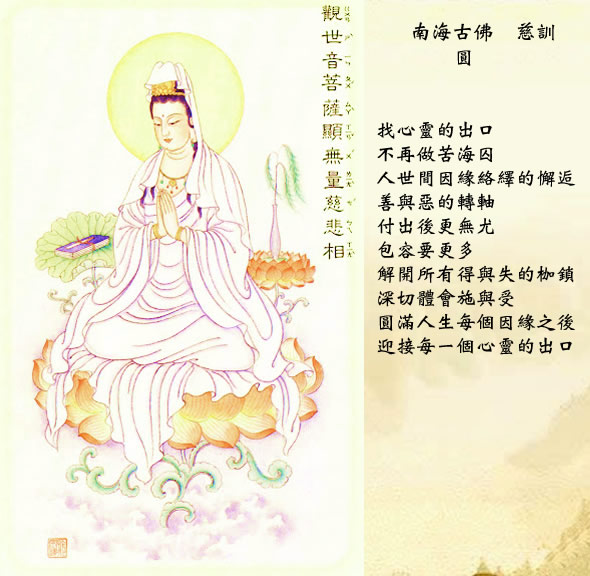 觀世音菩薩顯無量慈悲相
南海古佛　慈訓
圓
找心靈的出口
不再做苦海囚
人世間因緣絡繹的懈逅
善與惡的轉軸
付出後更無尤
包容要更多
解開所有得與失的枷鎖
深切體會施與受
圓滿人生每個因緣之後
迎接每一個心靈的出口